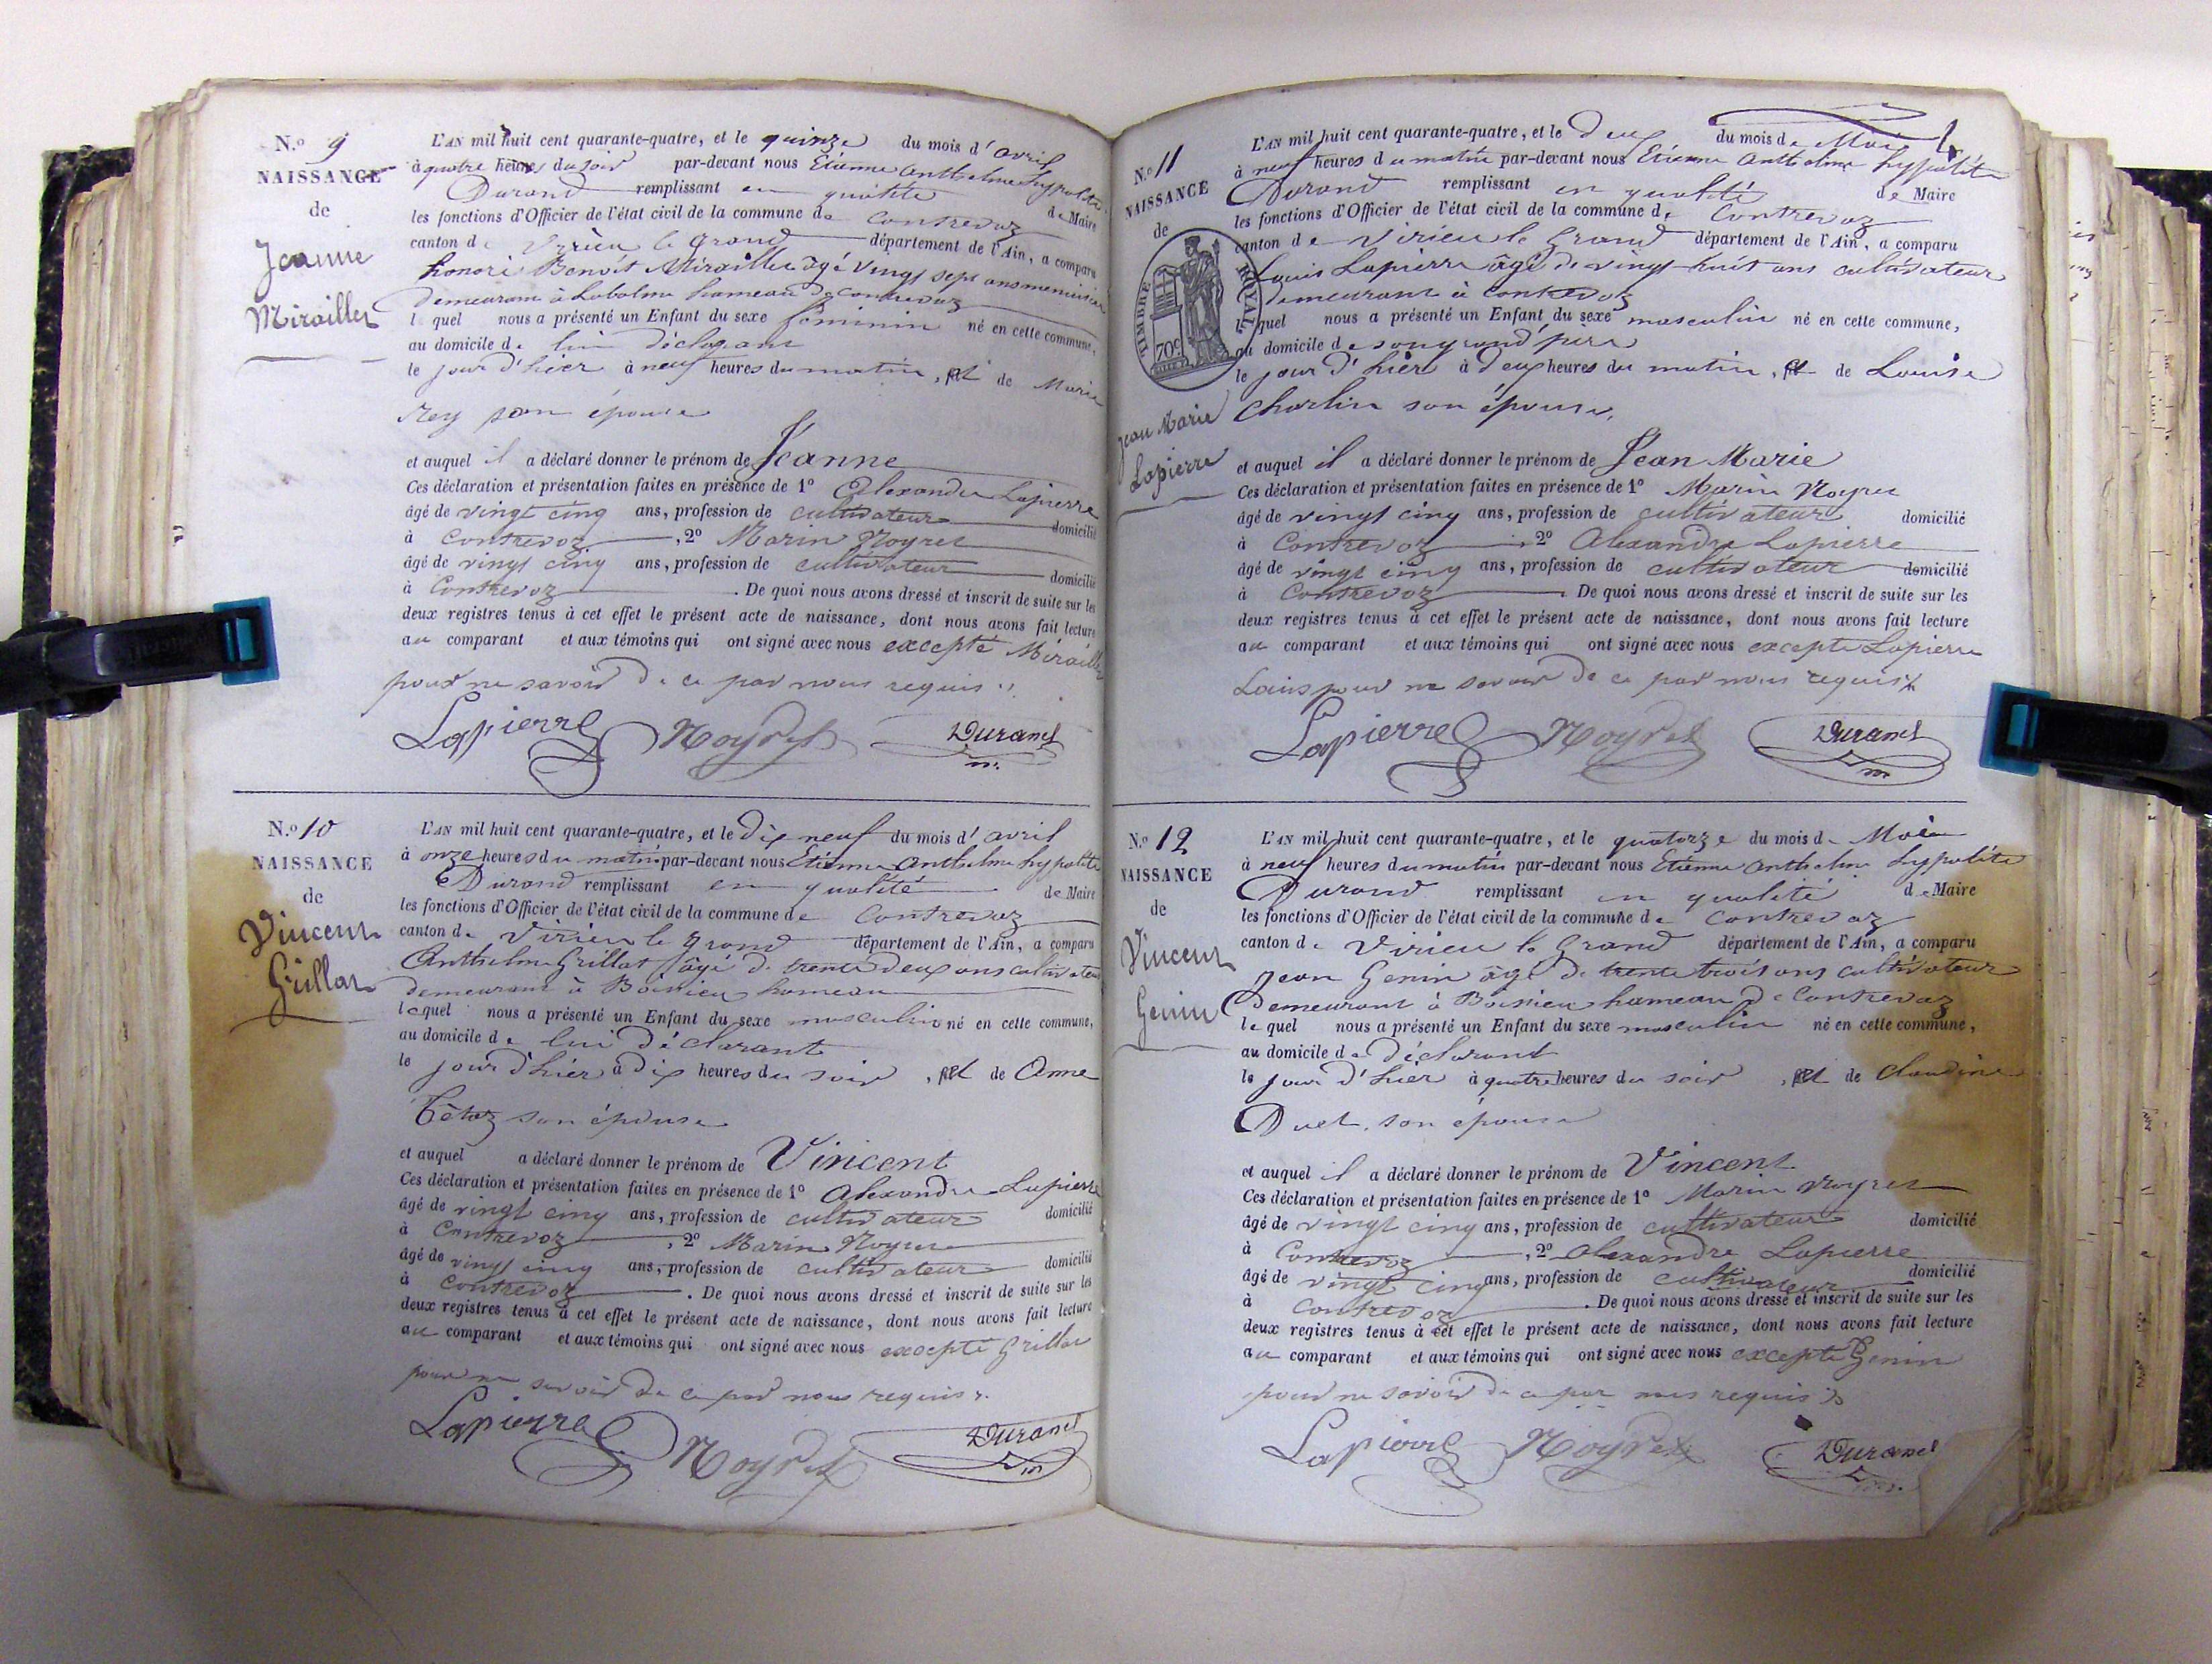 N.º 9
NAISSANCE
de
Jeanne
Miraillet
L'AN mil huit cent quarante-quatre, et le quinze du mois d'avril
à quatre heures du soir par-devant nous Etienne Anthelme hyppolite
Durand remplissant en qualité de Maire
les fonctions d'Officier de l'état civil de la commune de Contrevoz
canton de Virieu le grand département de l'Ain, a comparu
honoré Benoit Miraillet âgé vingt sept ans menuisier
demeurant à Labalme hameau de contrevoz
lequel nous a présenté un Enfant du sexe féminin né en cette commune,
au domicile de lui déclarant
le jour d'hier à neuf heures du matin, et de Marie
Rey son épouse
et auquel il a déclaré donner le prénom de Jeanne
Ces déclaration et présentation faites en présence de 1º Alexandre Lapierre
âgé de vingt cinq ans, profession de cultivateur domicilié
à Contrevoz, 2º Marin Noyret
âgé de vingt cinq ans, profession de cultivateur domicilié
à Contrevoz. De quoi nous avons dressé et inscrit de suite sur les
deux registres tenus à cet effet le présent acte de naissance, dont nous avons fait lecture
au comparant et aux témoins qui ont signé avec nous excepté Miraillet
pour ne savoir de ce par nous requis.
Lapierre Noyret Durand
m.
N.º 10
NAISSANCE
de
Vincent
Grillat
L'AN mil huit cent quarante-quatre, et le dix neuf du mois d'avril
à onze heures du matin par-devant nous Etienne Anthelme hyppolite
Durand remplissant en qualité de Maire
les fonctions d'Officier de l'état civil de la commune de Contrevoz
canton de Virieu le grand département de l'Ain, a comparu
Anthelme Grillat âgé de trente deux ans cultivateur
demeurant à Boissieu hameau
lequel nous a présenté un Enfant du sexe masculin né en cette commune,
au domicile de lui déclarant
le jour d'hier à dix heures du soir, et de Anne
Tétaz son épouse
et auquel a déclaré donner le prénom de Vincent
Ces déclaration et présentation faites en présence de 1º Alexandre Lapierre
âgé de vingt cinq ans, profession de cultivateur domicilié
à Contrevoz, 2º Marin Noyret
âgé de vingt cinq ans, profession de cultivateur domicilié
à Contrevoz. De quoi nous avons dressé et inscrit de suite sur les
deux registres tenus à cet effet le présent acte de naissance, dont nous avons fait lecture
au comparant et aux témoins qui ont signé avec nous excepté Grillat
pour ne savoir de ce par nous requis.
Lapierre Noyret Durand
m
N.º 11
NAISSANCE
de
TIMBRE ROYAL
70c
Jean Marie
Lapierre
L'AN mil huit cent quarante-quatre, et le deux du mois de Mai
à neuf heures du matin par-devant nous Etienne Anthelme hyppolite
Durand remplissant en qualité de Maire
les fonctions d'Officier de l'état civil de la commune de Contrevoz
canton de Virieu le Grand département de l'Ain, a comparu
Louis Lapierre âgé de vingt huit ans cultivateur
demeurant à contrevoz
lequel nous a présenté un Enfant du sexe masculin né en cette commune,
au domicile de son grand père
le jour d'hier à deux heures du matin, et de Louise
Charlin son épouse,
et auquel il a déclaré donner le prénom de Jean Marie
Ces déclaration et présentation faites en présence de 1º Marin Noyret
âgé de vingt cinq ans, profession de cultivateur domicilié
à Contrevoz, 2º Alexandre Lapierre
âgé de vingt cinq ans, profession de cultivateur domicilié
à Contrevoz. De quoi nous avons dressé et inscrit de suite sur les
deux registres tenus à cet effet le présent acte de naissance, dont nous avons fait lecture
au comparant et aux témoins qui ont signé avec nous excepté Lapierre
Louis pour ne savoir de ce par nous requis
Lapierre Noyret Durand
m
N.º 12
NAISSANCE
de
Vincent
Genin
L'AN mil huit cent quarante-quatre, et le quatorze du mois de Mai
à neuf heures du matin par-devant nous Etienne Anthelme hyppolite
Durand remplissant en qualité de Maire
les fonctions d'Officier de l'état civil de la commune de Contrevoz
canton de Virieu le Grand département de l'Ain, a comparu
Jean Genin âgé de trente trois ans cultivateur
demeurant à Boissieu hameau de Contrevoz
lequel nous a présenté un Enfant du sexe masculin né en cette commune,
au domicile de déclarant
le jour d'hier à quatre heures du soir, et de Claudine
Duet son épouse
et auquel il a déclaré donner le prénom de Vincent
Ces déclaration et présentation faites en présence de 1º Marin Noyret
âgé de vingt cinq ans, profession de cultivateur domicilié
à Contrevoz, 2º Alexandre Lapierre
âgé de vingt cinq ans, profession de cultivateur domicilié
à Contrevoz. De quoi nous avons dressé et inscrit de suite sur les
deux registres tenus à cet effet le présent acte de naissance, dont nous avons fait lecture
au comparant et aux témoins qui ont signé avec nous excepté Genin
pour ne savoir de ce par nous requis
Lapierre Noyret Durand